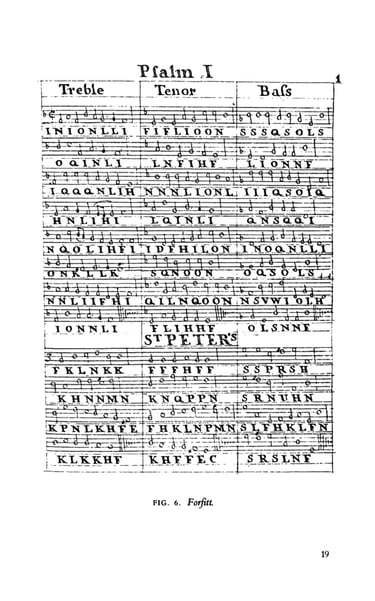 Psalm I
1
Treble Tenor Bass
INIONLLI FIFLIOON SSSQSOLS
OQINLI LNFIHF LIONNF
IQQQNLIH NNNLIONL IIIQSOIQ
HNLIHI LQINLI QNSQQI
NQOLIHFI IDFHILON INOQNLLI
ONKLLK SQNOON OQSOLS
NNLIIFHI QILNQOON NSVWIOLH
IONNLI FLIHHF OLSNNF
ST PETER'S
FKLNKK FFFHFF SSPRSH
KHNNMN KNQPPN SRNUHN
KPNLKHFE FHKLNPMN SLFHKLFN
KLKKHF KHFFEC SRSLNF
FIG. 6. Forfitt.
19